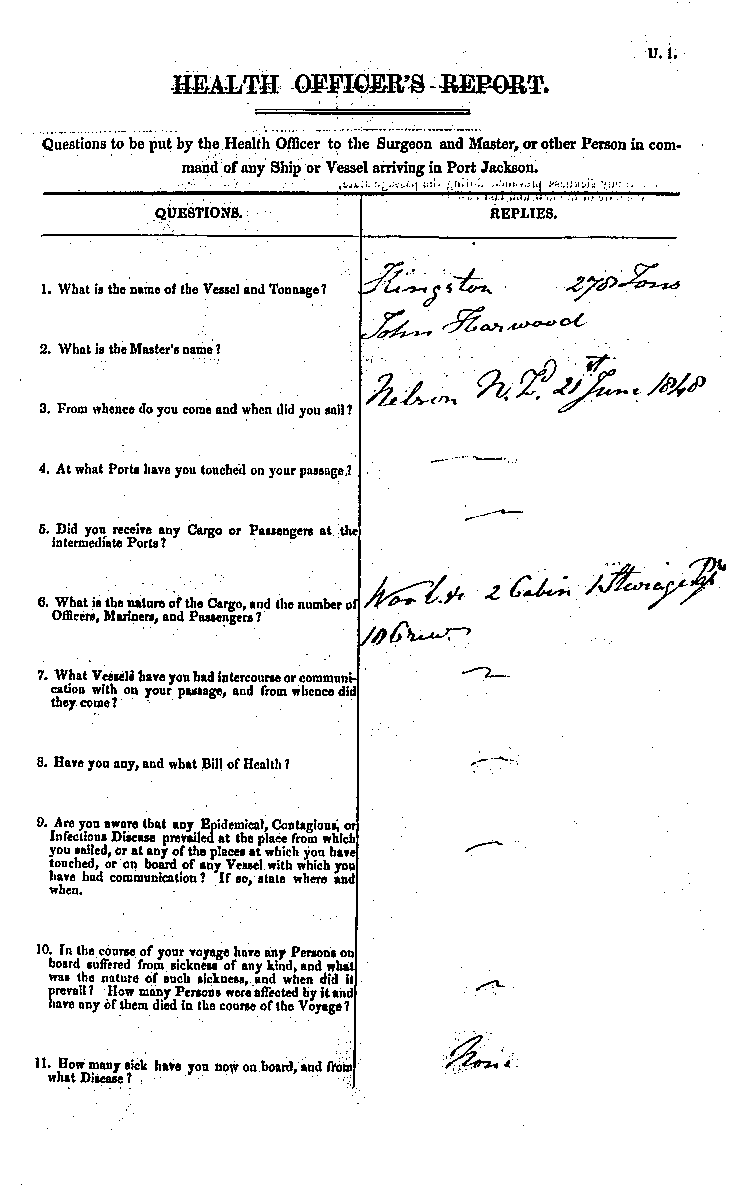 U. 1.
HEALTH OFFICER'S REPORT.
Questions to be put by the Health Officer to the Surgeon and Master, or other Person in com-
mand of any Ship or Vessel arriving in Port Jackson.
QUESTIONS.
REPLIES.
1. What is the name of the Vessel and Tonnage?
Kingston 278 Tons
2. What is the Master's name?
John Harwood
3. From whence do you come and when did you sail?
Nelson N.Z. 21st June 1848
4. At what Ports have you touched on your passage?
—
5. Did you receive any Cargo or Passengers at the
intermediate Ports?
—
6. What is the nature of the Cargo, and the number of
Officers, Mariners, and Passengers?
Wool &c 2 Cabin 1 Steerage
10 Crew
7. What Vessels have you had intercourse or communi-
cation with on your passage, and from whence did
they come?
—
8. Have you any, and what Bill of Health?
—
9. Are you aware that any Epidemical, Contagious, or
Infectious Disease prevailed at the place from which
you sailed, or at any of the places at which you have
touched, or on board of any Vessel with which you
have had communication? If so, state where and
when.
—
10. In the course of your voyage have any Persons on
board suffered from sickness of any kind, and what
was the nature of such sickness, and when did it
prevail? How many Persons were affected by it and
have any of them died in the course of the Voyage?
—
11. How many sick have you now on board, and from
what Disease?
None